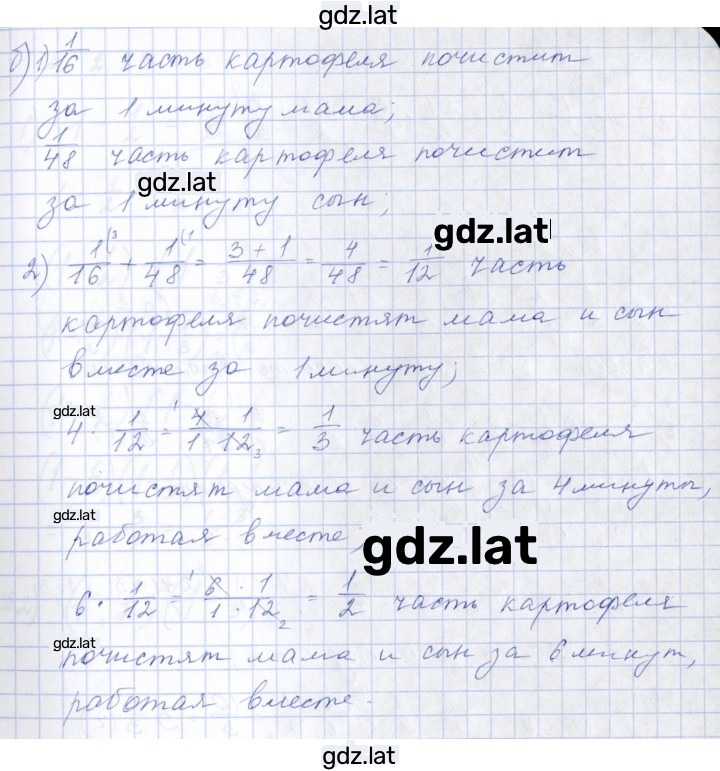 gdz.lat
б) 1) 1/16 часть картофеля почистит
за 1 минуту мама;
1/48 часть картофеля почистит
gdz.lat
за 1 минуту сын;
gdz.lat
2) 1(3/16 + 1(1/48 = 3+1/48 = 4/48 = 1/12 часть
картофеля почистят мама и сын
вместе за 1 минуту;
gdz.lat
4 · 1/12 = 4 · 1/1 · 12 = 1/3 часть картофеля
почистят мама и сын за 4 минуты,
gdz.lat
работая вместе;
gdz.lat
6 · 1/12 = 6 · 1/1 · 12 = 1/2 часть картофеля
gdz.lat
почистят мама и сын за 6 минут,
работая вместе.
gdz.lat